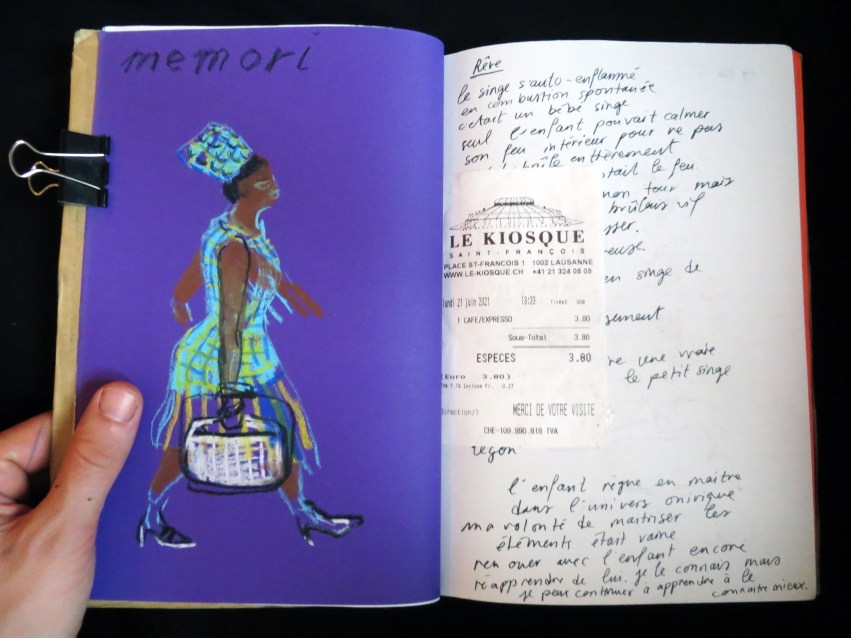 memori
Rêve
le singe s'auto-enflammé
en combustion spontanée
c'était un bébé singe
seul l'enfant pouvait calmer
son feu intérieur pour ne pas
brûle entièrement
tait le feu
mon tour mais
brûlais vif
sser.
euse.
en singe de
sement
re une vraie
le petit singe
LE KIOSQUE
SAINT-FRANÇOIS
PLACE ST-FRANCOIS 1 1002 LAUSANNE
WWW.LE-KIOSQUE.CH +41 21 324 05 05
lundi 21 juin 2021 13:33 Ticket
1 CAFE/EXPRESSO 3.80
Sous-Total 3.80
ESPECES 3.80
(Euro 3.80)
TVA 7.7% Incluse Fr. 0.27
Direction/1 MERCI DE VOTRE VISITE
CHE-109.990.818 TVA
leçon
l'enfant règne en maitre
dans l'univers onirique
ma volonté de maitriser les
éléments était vaine
renouer avec l'enfant encore
réapprendre de lui. je le connais mais
je peux continuer à apprendre à le
connaitre mieux.